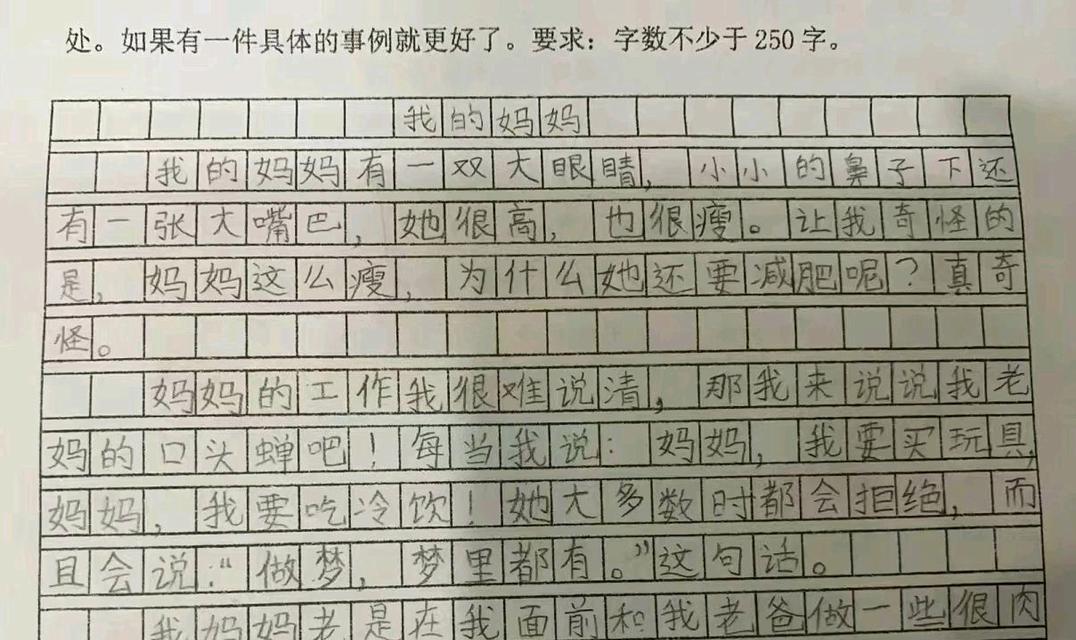 处。如果有一件具体的事例就更好了。要求：字数不少于250字。
我的妈妈
我的妈妈有一双大眼睛，小小的鼻子下还
有一张大嘴巴，她很高，也很瘦。让我奇怪的
是，妈妈这么瘦，为什么她还要减肥呢？真奇
怪。
妈妈的工作我很难说清，那我来说说我老
妈的口头蝉吧！每当我说：妈妈，我要买玩具，
妈妈，我要吃冷饮！她大多数时都会拒绝，而
且会说：“做梦，梦里都有。”这句话。
我妈妈老是在我面前和我老爸做一些很肉